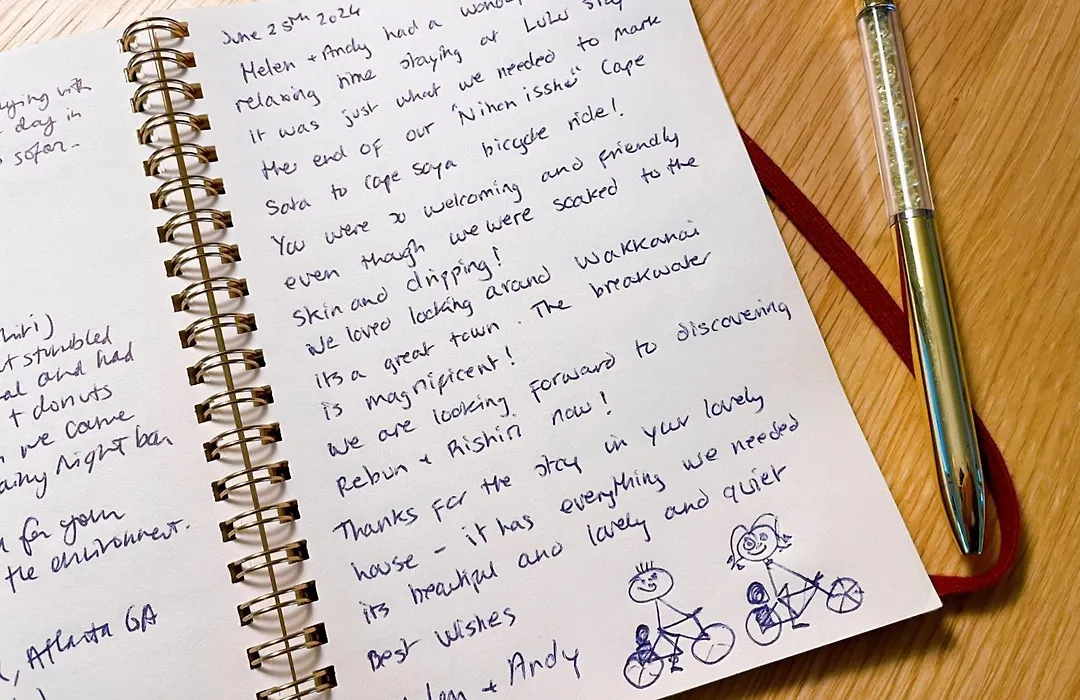 aying with
day in
sofar.-
hiri)
t stumbled
al and had
+ donuts
we came
ainy Night bar
for your
the environment.
, Atlanta GA
June 25th 2024
Helen + Andy had a
relaxing time staying at LuLu Stay
it was just what we needed to mark
the end of our "Nihon isshu" Cape
Sata to Cape Soya bicycle ride!
You were so welcoming and friendly
even though we were soaked to the
skin and dripping!
We loved looking around Wakkanai
its a great town. The breakwater
is magnificent!
We are looking forward to discovering
Rebun + Rishiri now!
Thanks for the stay in your lovely
house - it has everything we needed
its beautiful and lovely and quiet
Best wishes
len + Andy